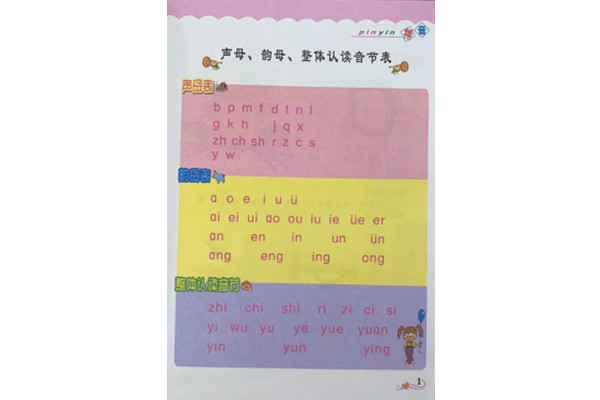 pinyin 拼音
声母、韵母、整体认读音节表
声母表
b p m f d t n l
g k h j q x
zh ch sh r z c s
y w
韵母表
ɑ o e i u ü
ɑi ei ui ɑo ou iu ie üe er
ɑn en in un ün
ɑng eng ing ong
整体认读音节
zhi chi shi ri zi ci si
yi wu yu ye yue yuɑn
yin yun ying
1